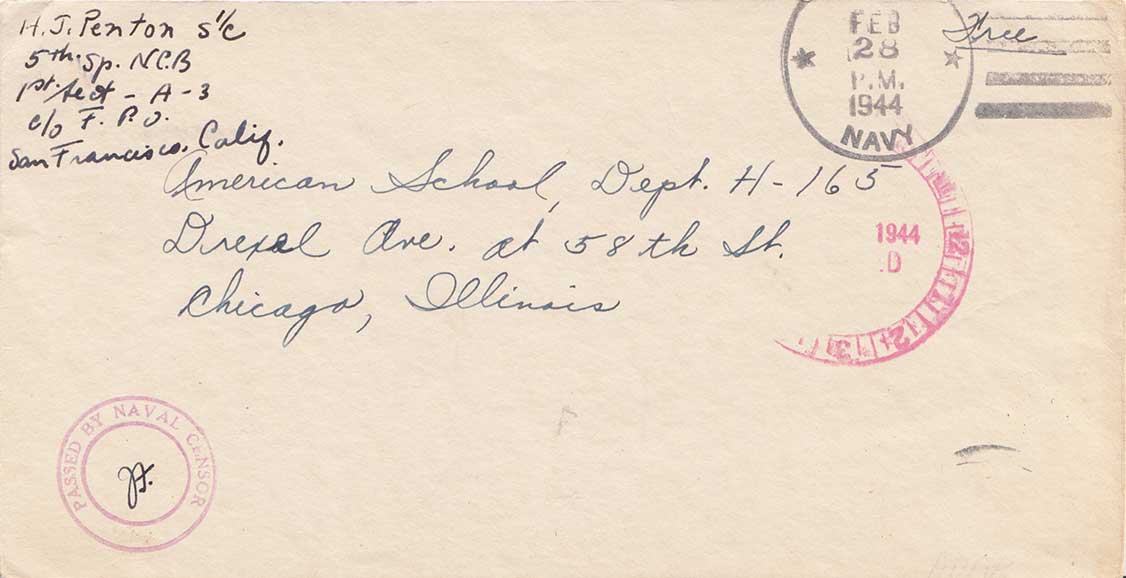 H. J. Penton S 1/c
5th Sp. NCB
Pt. Sect - A-3
c/o F. P. O.
San Francisco, Calif.
FEB
28
P.M.
1944
NAVY
Free
American School, Dept. H-165
Drexel Ave. at 58th St.
Chicago, Illinois
1944
D
12
2
3
PASSED BY NAVAL CENSOR